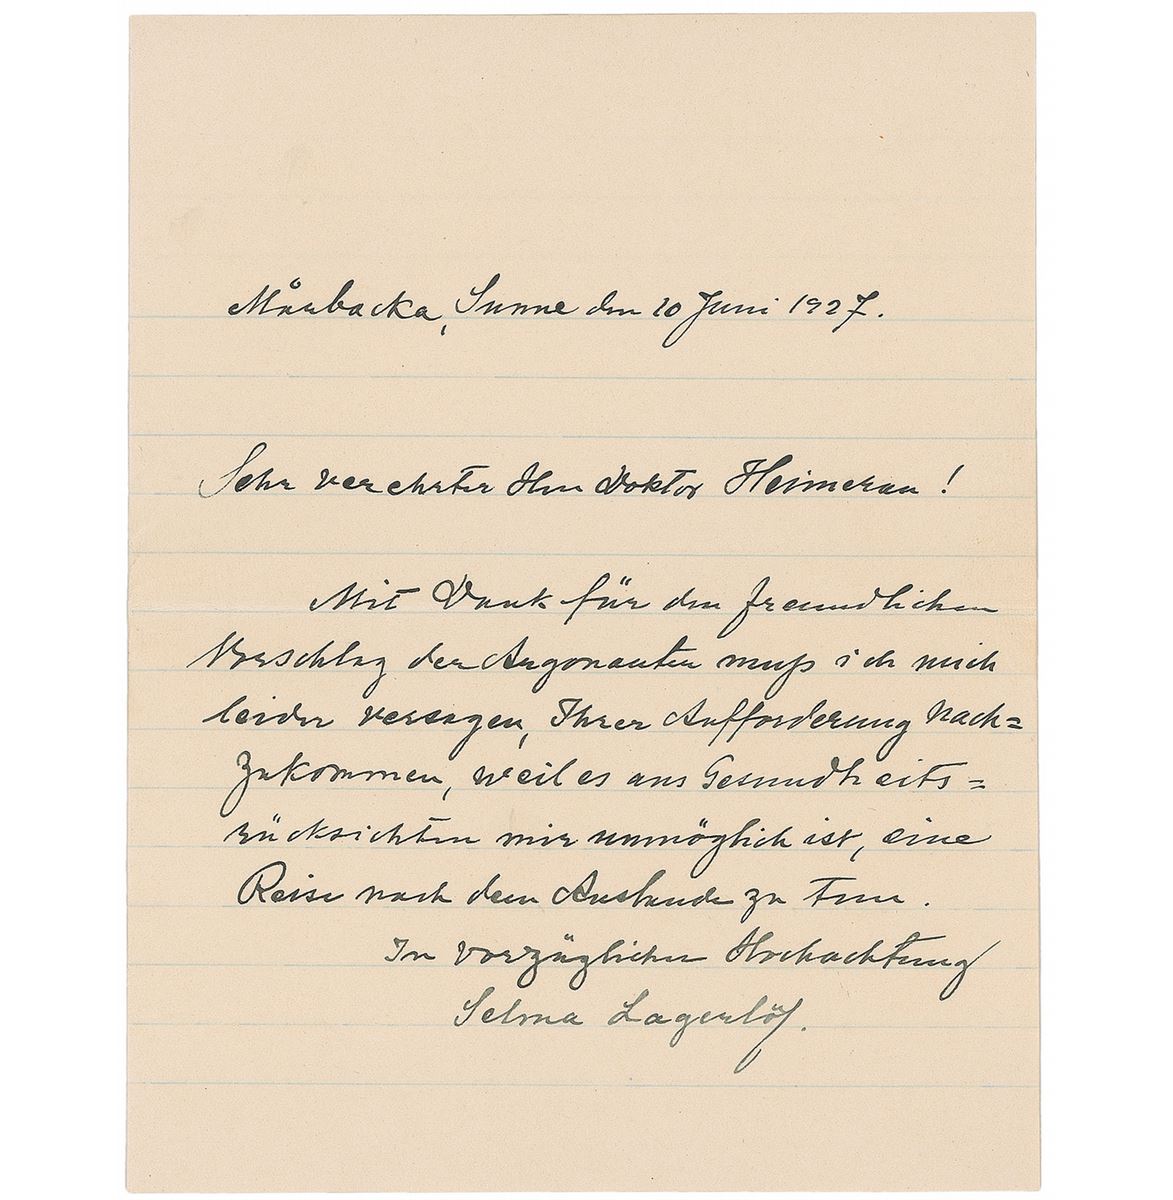 Mårbacka, Sunne den 20 Juni 1927.
Sehr verehrter Herr Doktor Heimeran!
Mit Dank für den freundlichen
Vorschlag der Argonauten muß ich mich
leider versagen, Ihrer Aufforderung nach=
zukommen, weil es aus Gesundheits=
rücksichten mir unmöglich ist, eine
Reise nach dem Auslande zu tun.
In vorzüglicher Hochachtung
Selma Lagerlöf.